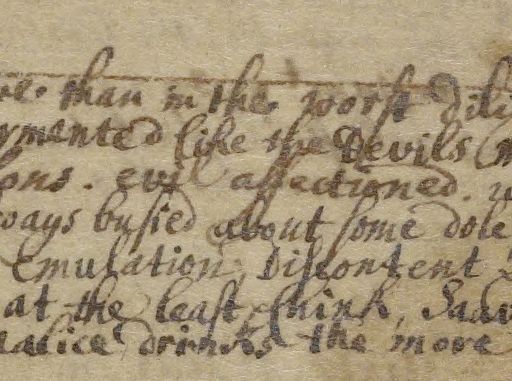 than in the worst
rmented like the Devils
ons. evil affectioned.
ways busied about some dole
Emulation, Discontent
at the least chink,
malice drinks the more